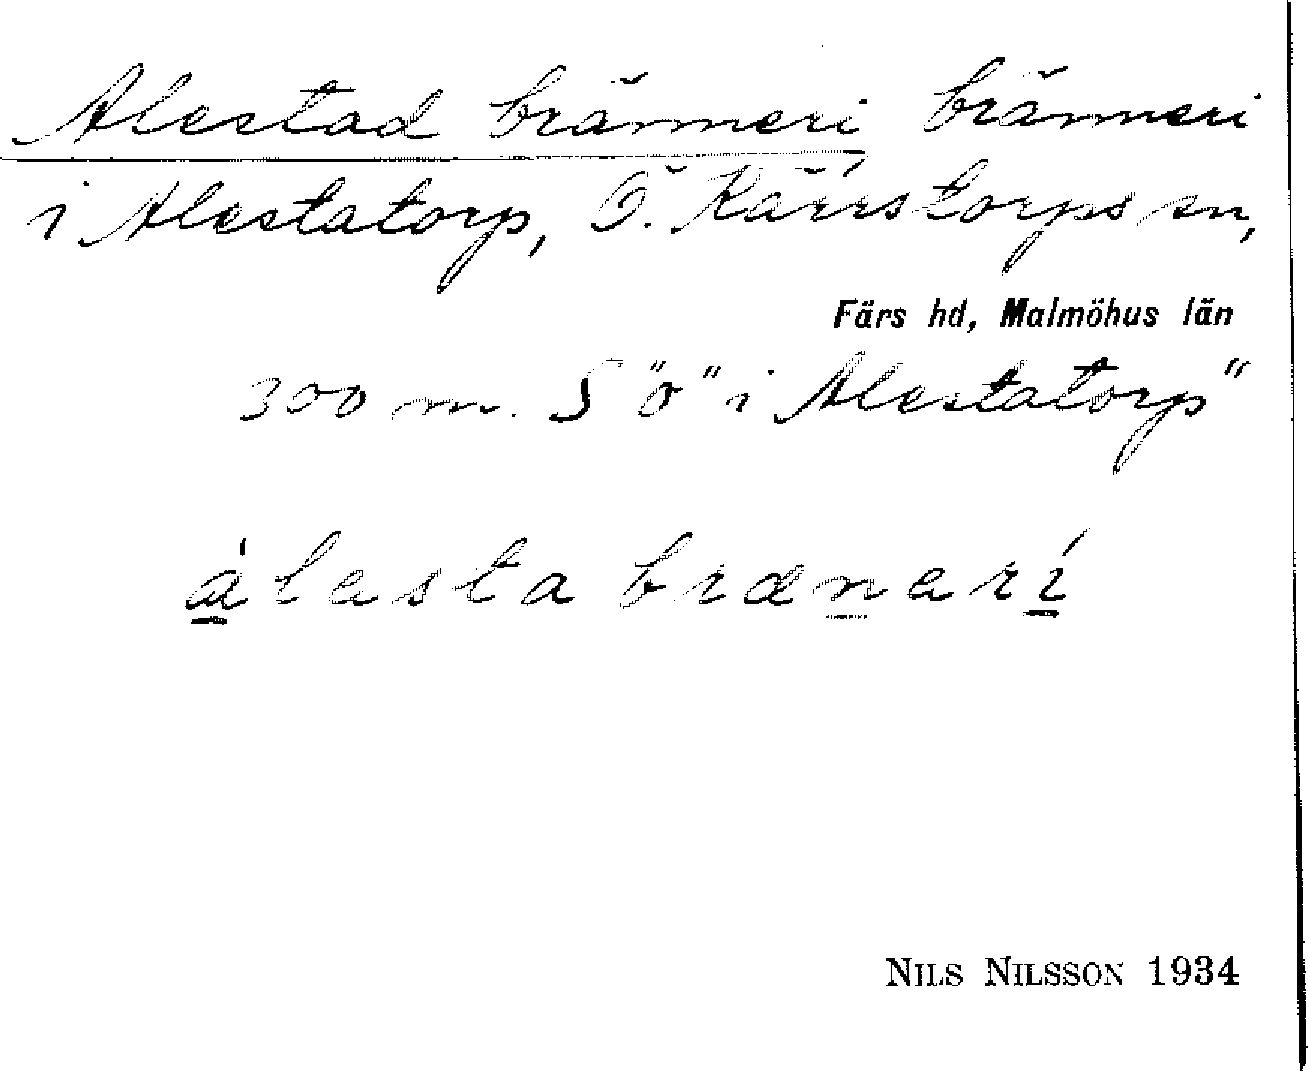 Alestad bränneri bränneri
i Alestatorp, Ö. Kärrstorps sn,
Färs hd, Malmöhus län
300 m. S "ö" i Alestatorp"
àlesta brænerí
NILS NILSSON 1934